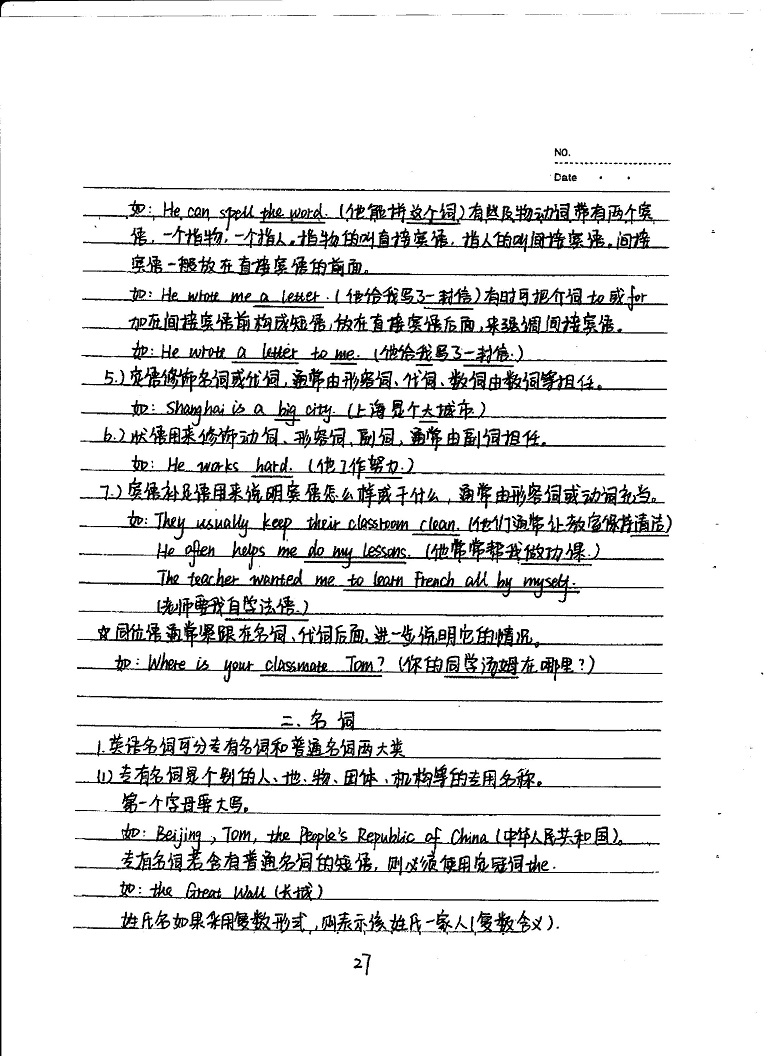 NO.
Date
如: He can spell the word. (他能拼这个词) 有些及物动词带有两个宾
语,一个指物,一个指人。指物的叫直接宾语,指人的叫间接宾语。间接
宾语一般放在直接宾语的前面。
如: He wrote me a letter. (他给我写了一封信) 有时可把介词 to 或 for
加在间接宾语前构成短语,放在直接宾语后面,来强调间接宾语。
如: He wrote a letter to me. (他给我写了一封信.)
5.) 定语修饰名词或代词,通常由形容词、代词、数词由数词等担任。
如: Shanghai is a big city. (上海是个大城市.)
6.) 状语用来修饰动词、形容词、副词,通常由副词担任。
如: He works hard. (他工作努力.)
7.) 宾语补足语用来说明宾语怎么样或干什么,通常由形容词或动词充当。
如: They usually keep their classroom clean. (他们通常让教室保持清洁)
He often helps me do my lessons. (他常常帮我做功课.)
The teacher wanted me to learn French all by myself.
(老师要我自学法语.)
☆同位语通常紧跟在名词、代词后面,进一步说明它的情况。
如: Where is your classmate Tom? (你的同学汤姆在哪里?)
二、名 词
1.英语名词可分专有名词和普通名词两大类
(1) 专有名词是个别的人、地、物、团体、机构等的专用名称。
第一个字母要大写。
如: Beijing, Tom, the People's Republic of China (中华人民共和国)。
专有名词若含有普通名词的短语,则必须使用定冠词the.
如: the Great Wall (长城)
姓氏名如果采用复数形式,则表示该姓氏一家人(复数含义).
27